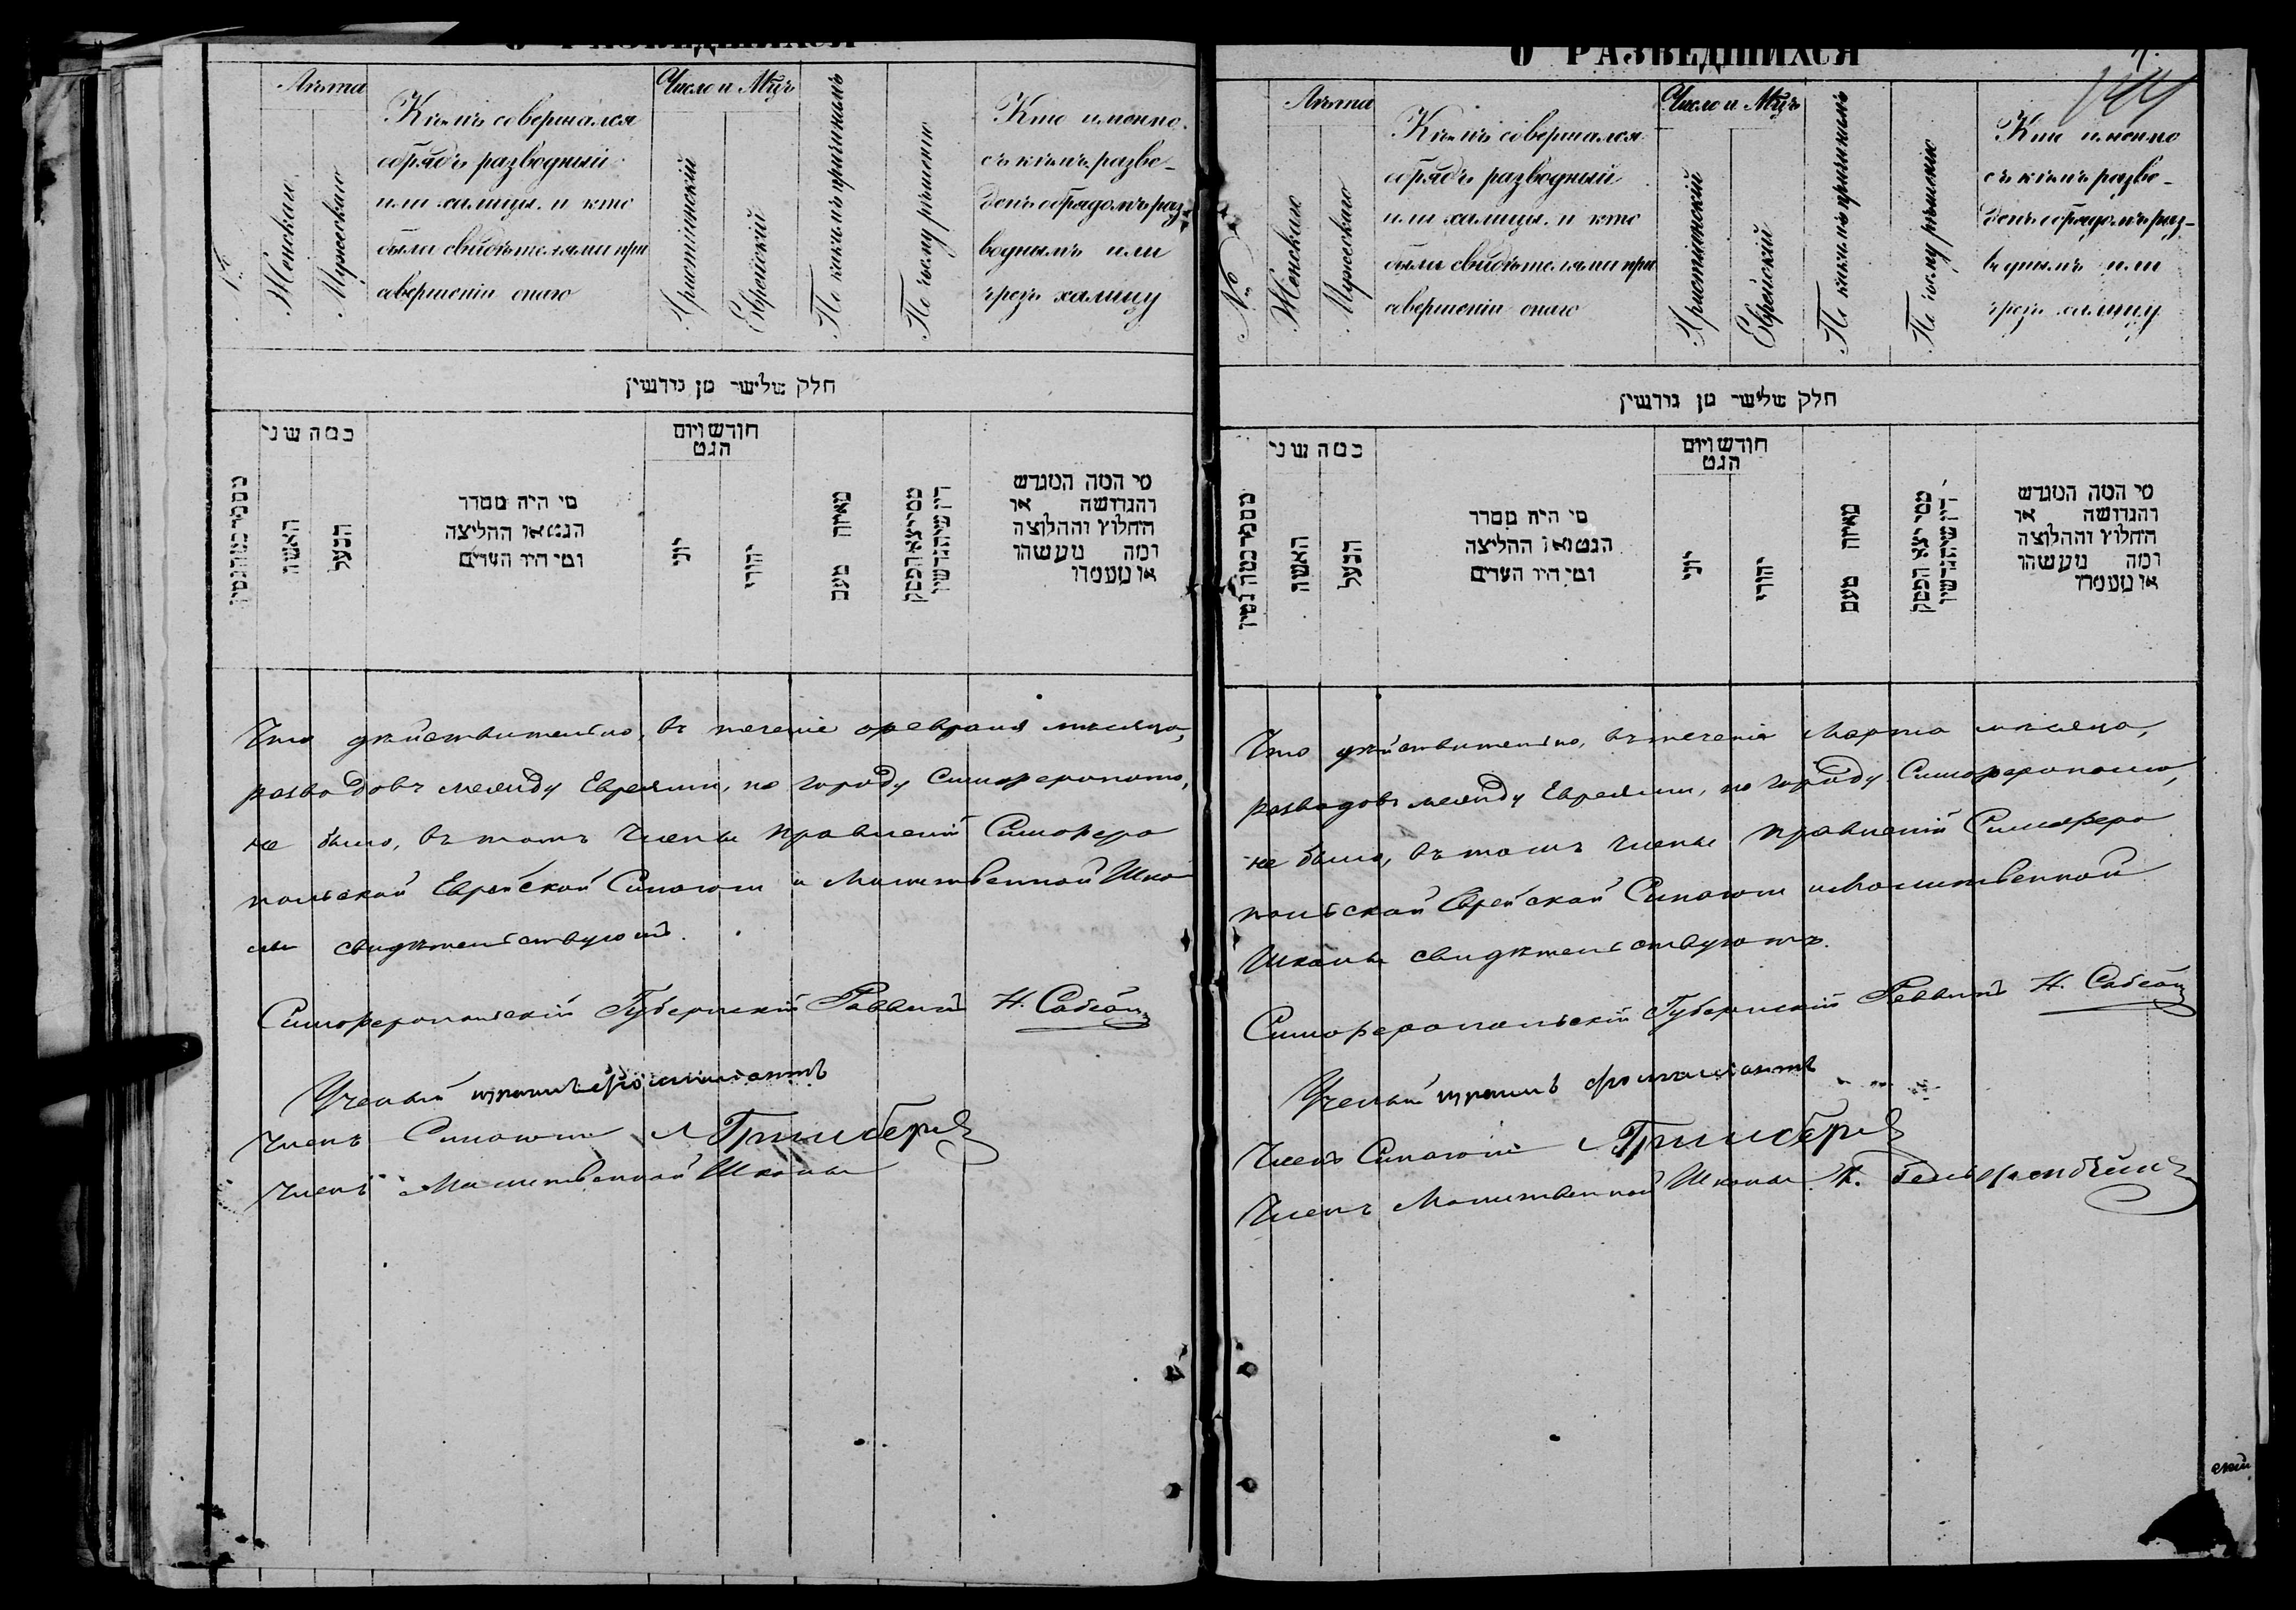 О РАЗВЕДШИХСЯ
№
Лѣта
Женскаго
Мужескаго
Кѣмъ совершался
обрядъ разводный
или халицы. и кто
были свидѣтелями при
совершеніи онаго
Число и Мцъ
Христіянскій
Еврейскій
По какимъ причинамъ
По чьему рѣшенію
Кто именно
съ кѣмъ разве-
денъ обрядомъ раз-
воднымъ или
чрезъ халицу
חלק שלישי מן גירושין
מספר כמה גטין
כמה שני
האשה
הבעל
מי היה מסדר
הגט או החליצה
ומי היו העדים
חודש ויום
הגט
יוני
יהודי
מאיזה טעם
ממי יצא הפסק
דין שיתגרשו
מי המה המגרש
והגרושה או
החלוץ והחלוצה
ומה מעשהו
או מעמדו
Что дѣйствительно, въ теченіе февраля мѣсяца,
разводовъ между Евреями, по городу Симферополю,
не было, въ томъ Члены Правленій Симферо
польской Еврейской Синагоги и Молитвенной Шко
лы свидѣтельствуютъ.
Симферопольскій Губернскій Раввинъ Н. Сабсай
Ученый
Членъ Синагоги Гринберг
Членъ Молитвенной Школы
О РАЗВЕДШИХСЯ
№
Лѣта
Женскаго
Мужескаго
Кѣмъ совершался
обрядъ разводный
или халицы. и кто
были свидѣтелями при
совершеніи онаго
Число и Мцъ
Христіянскій
Еврейскій
По какимъ причинамъ
По чьему рѣшенію
Кто именно
съ кѣмъ разве-
денъ обрядомъ раз-
воднымъ или
чрезъ халицу
חלק שלישי מן גירושין
מספר כמה גטין
כמה שני
האשה
הבעל
מי היה מסדר
הגט או החליצה
ומי היו העדים
חודש ויום
הגט
יוני
יהודי
מאיזה טעם
ממי יצא הפסק
דין שיתגרשו
מי המה המגרש
והגרושה או
החלוץ והחלוצה
ומה מעשהו
או מעמדו
Что дѣйствительно, въ теченіи Марта мѣсяца,
разводовъ между Евреями, по городу Симферополю,
не было, въ томъ Члены Правленій Симферо
польской Еврейской Синагоги и Молитвенной
Школы свидѣтельствуютъ.
Симферопольскій Губернскій Раввинъ Н. Сабсай
Ученый
Членъ Синагоги Гринберг
Членъ Молитвенной Школы